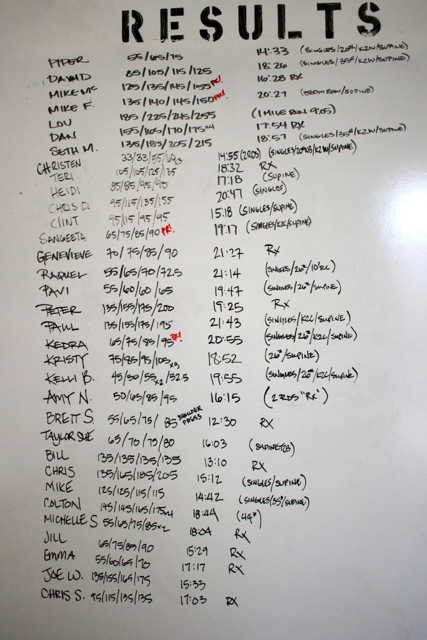 RESULTS
PIPER 55/65/75 14:33 (SINGLES/20#/K2W/SUPINE)
DAVID 85/105/115/125 18:26 (SINGLES/35#/K2W/SUPINE)
MIKE MC 125/135/145/155 PR! 16:28 RX
MIKE F. 135/140/145/150 PR! 20:27
LOU 185/225/245/255 (1 MILE RUN 9:05)
DAN 155/165/170/175x4 17:54 RX
SETH M. 135/185/205/215 18:57 (SINGLES/35#/K2W/SUPINE)
CHRISTEN 33/33/55/63 14:55 (2RDS)
TERI 105/105/125/135 18:32 RX
HEIDI 85/85/95/95 17:18 (SUPINE)
CHRIS D. 95/115/135/155 20:47 (SINGLES)
CLINT 95/115/95/95 15:18 (SINGLES/SUPINE)
SANGEETA 65/75/85/90 PR! 19:17 (SINGLES/K2C/SUPINE)
GENEVIEVE 70/75/85/90 21:27 RX
RAQUEL 55/65/70/72.5 21:14
PAVI 55/60/60/65 19:47 (SINGLES/26#/SUPINE)
PETER 135/155/175/200 19:25 RX
PAUL 135/155/175/195 21:43 (SINGLES/K2C/SUPINE)
KEDRA 65/75/85/95 PR! 20:55 (SINGLES/26#/K2C/SUPINE)
KRISTY 75/85/95/105x3 18:52 (26#/SUPINE)
KELLI B. 45/50/55x2/52.5 19:55 (SINGLES/26#/K2C/SUPINE)
AMY N. 50/65/85/95 16:15 (2 RDS "RX")
BRETT S. 55/65/75/85 SHOULDER PRESS 12:30 RX
TAYLOR SUE 65/70/75/80 16:03
BILL 135/135/135/135 13:10 RX
CHRIS 135/165/185/205 15:12 (SINGLES/SUPINE)
MIKE 125/125/115/115 14:42 (SINGLES/35#/SUPINE)
COLTON 145/145/165/175x4 18:44 (44#)
MICHELLE S 55/65/75/85x2 18:04 RX
JILL 65/75/85/90 15:29 RX
EMMA 55/60/65/70 17:17 RX
JOE W. 135/155/165/175 15:33
CHRIS S. 95/115/135/135 17:03 RX